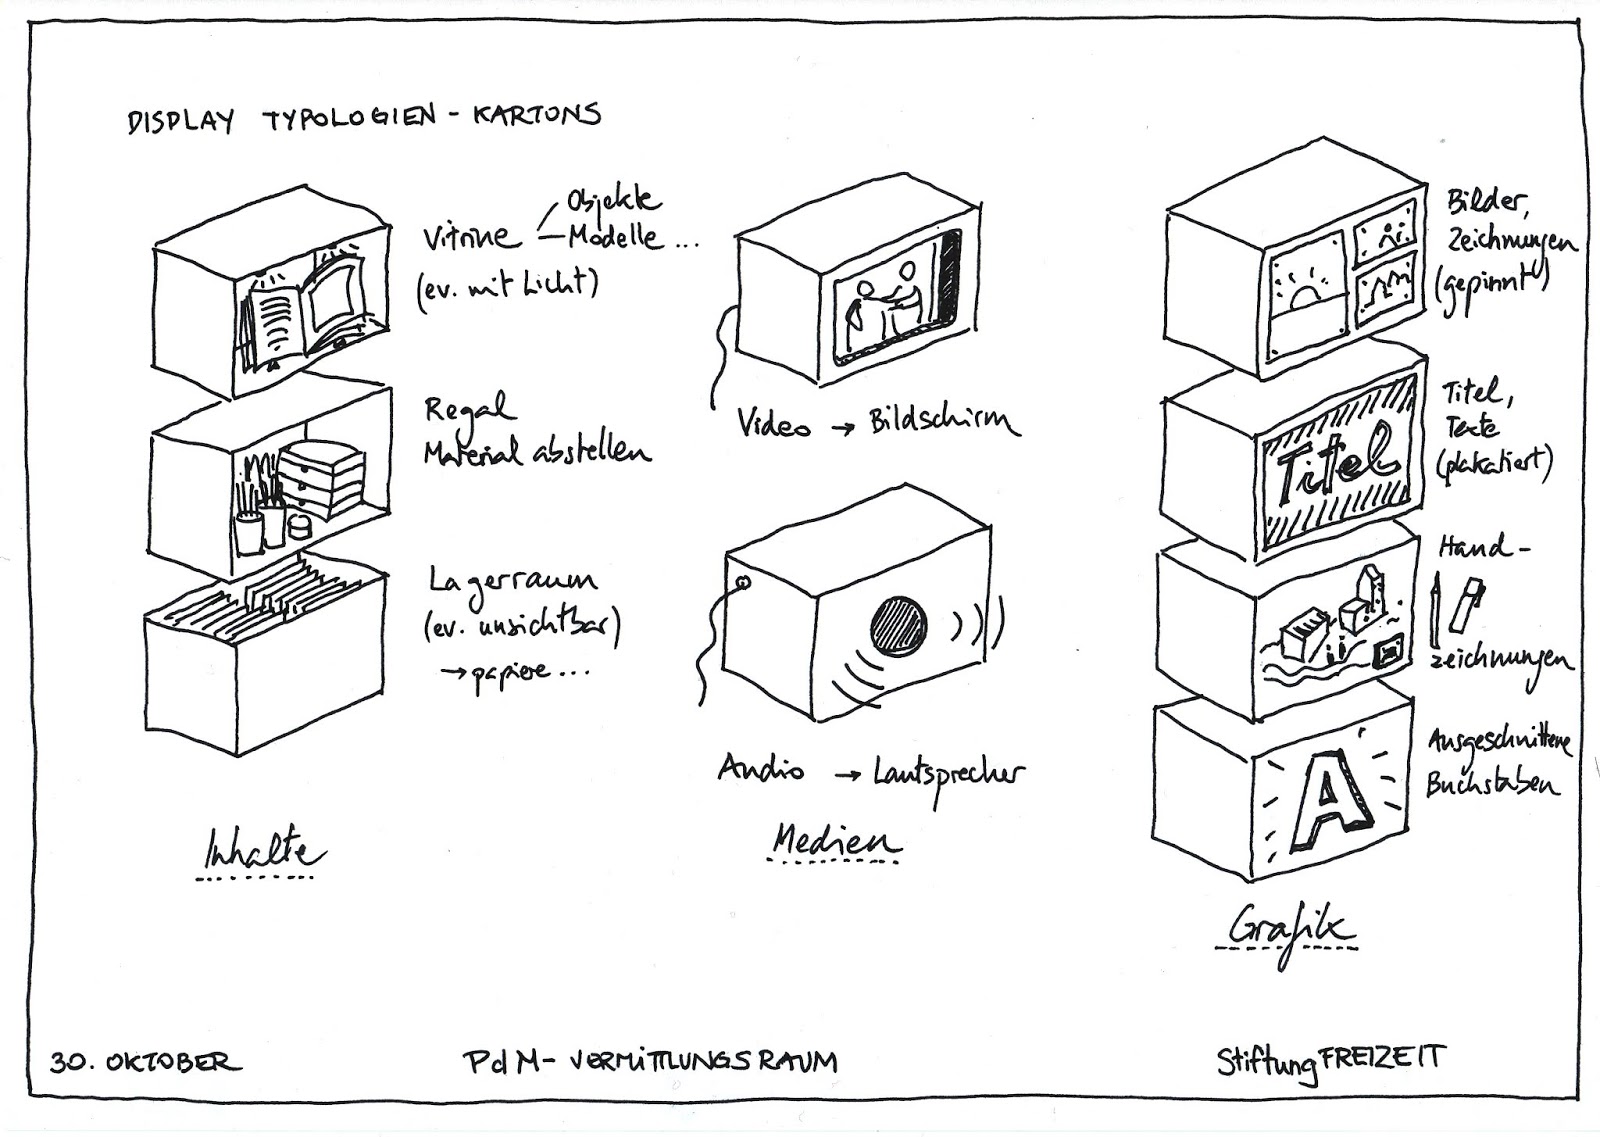 DISPLAY TYPOLOGIEN - KARTONS
Vitrine
Objekte
Modelle ...
(ev. mit Licht)
Regal
Material abstellen
Lagerraum
(ev. unsichtbar)
→ papiere ...
Inhalte
Video → Bildschirm
Audio → Lautsprecher
Medien
Bilder,
Zeichnungen
(gepinnt)
Titel
Titel,
Texte
(plakatiert)
Hand-
zeichnungen
A
Ausgeschnittene
Buchstaben
Grafik
30. OKTOBER
PdM- VERMITTLUNGSRAUM
StiftungFREIZEIT